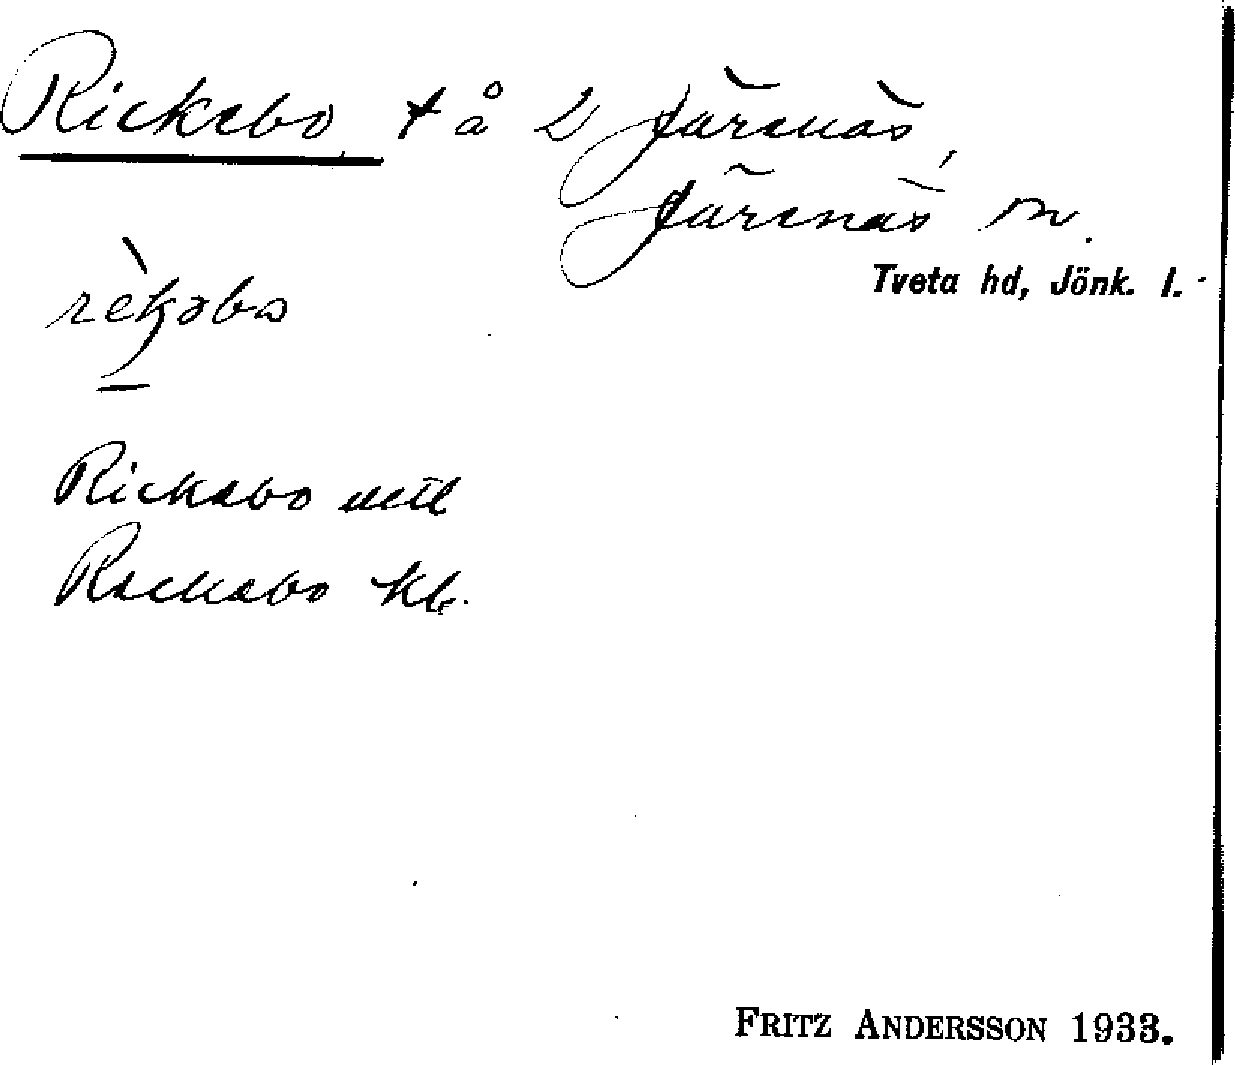 Rickabo t å 2 Järsnäs,
Järsnäs sn.
Tveta hd, Jönk. l.
rèkabo
Rickabo uttl
Rackabo kb.
FRITZ ANDERSSON 1933.